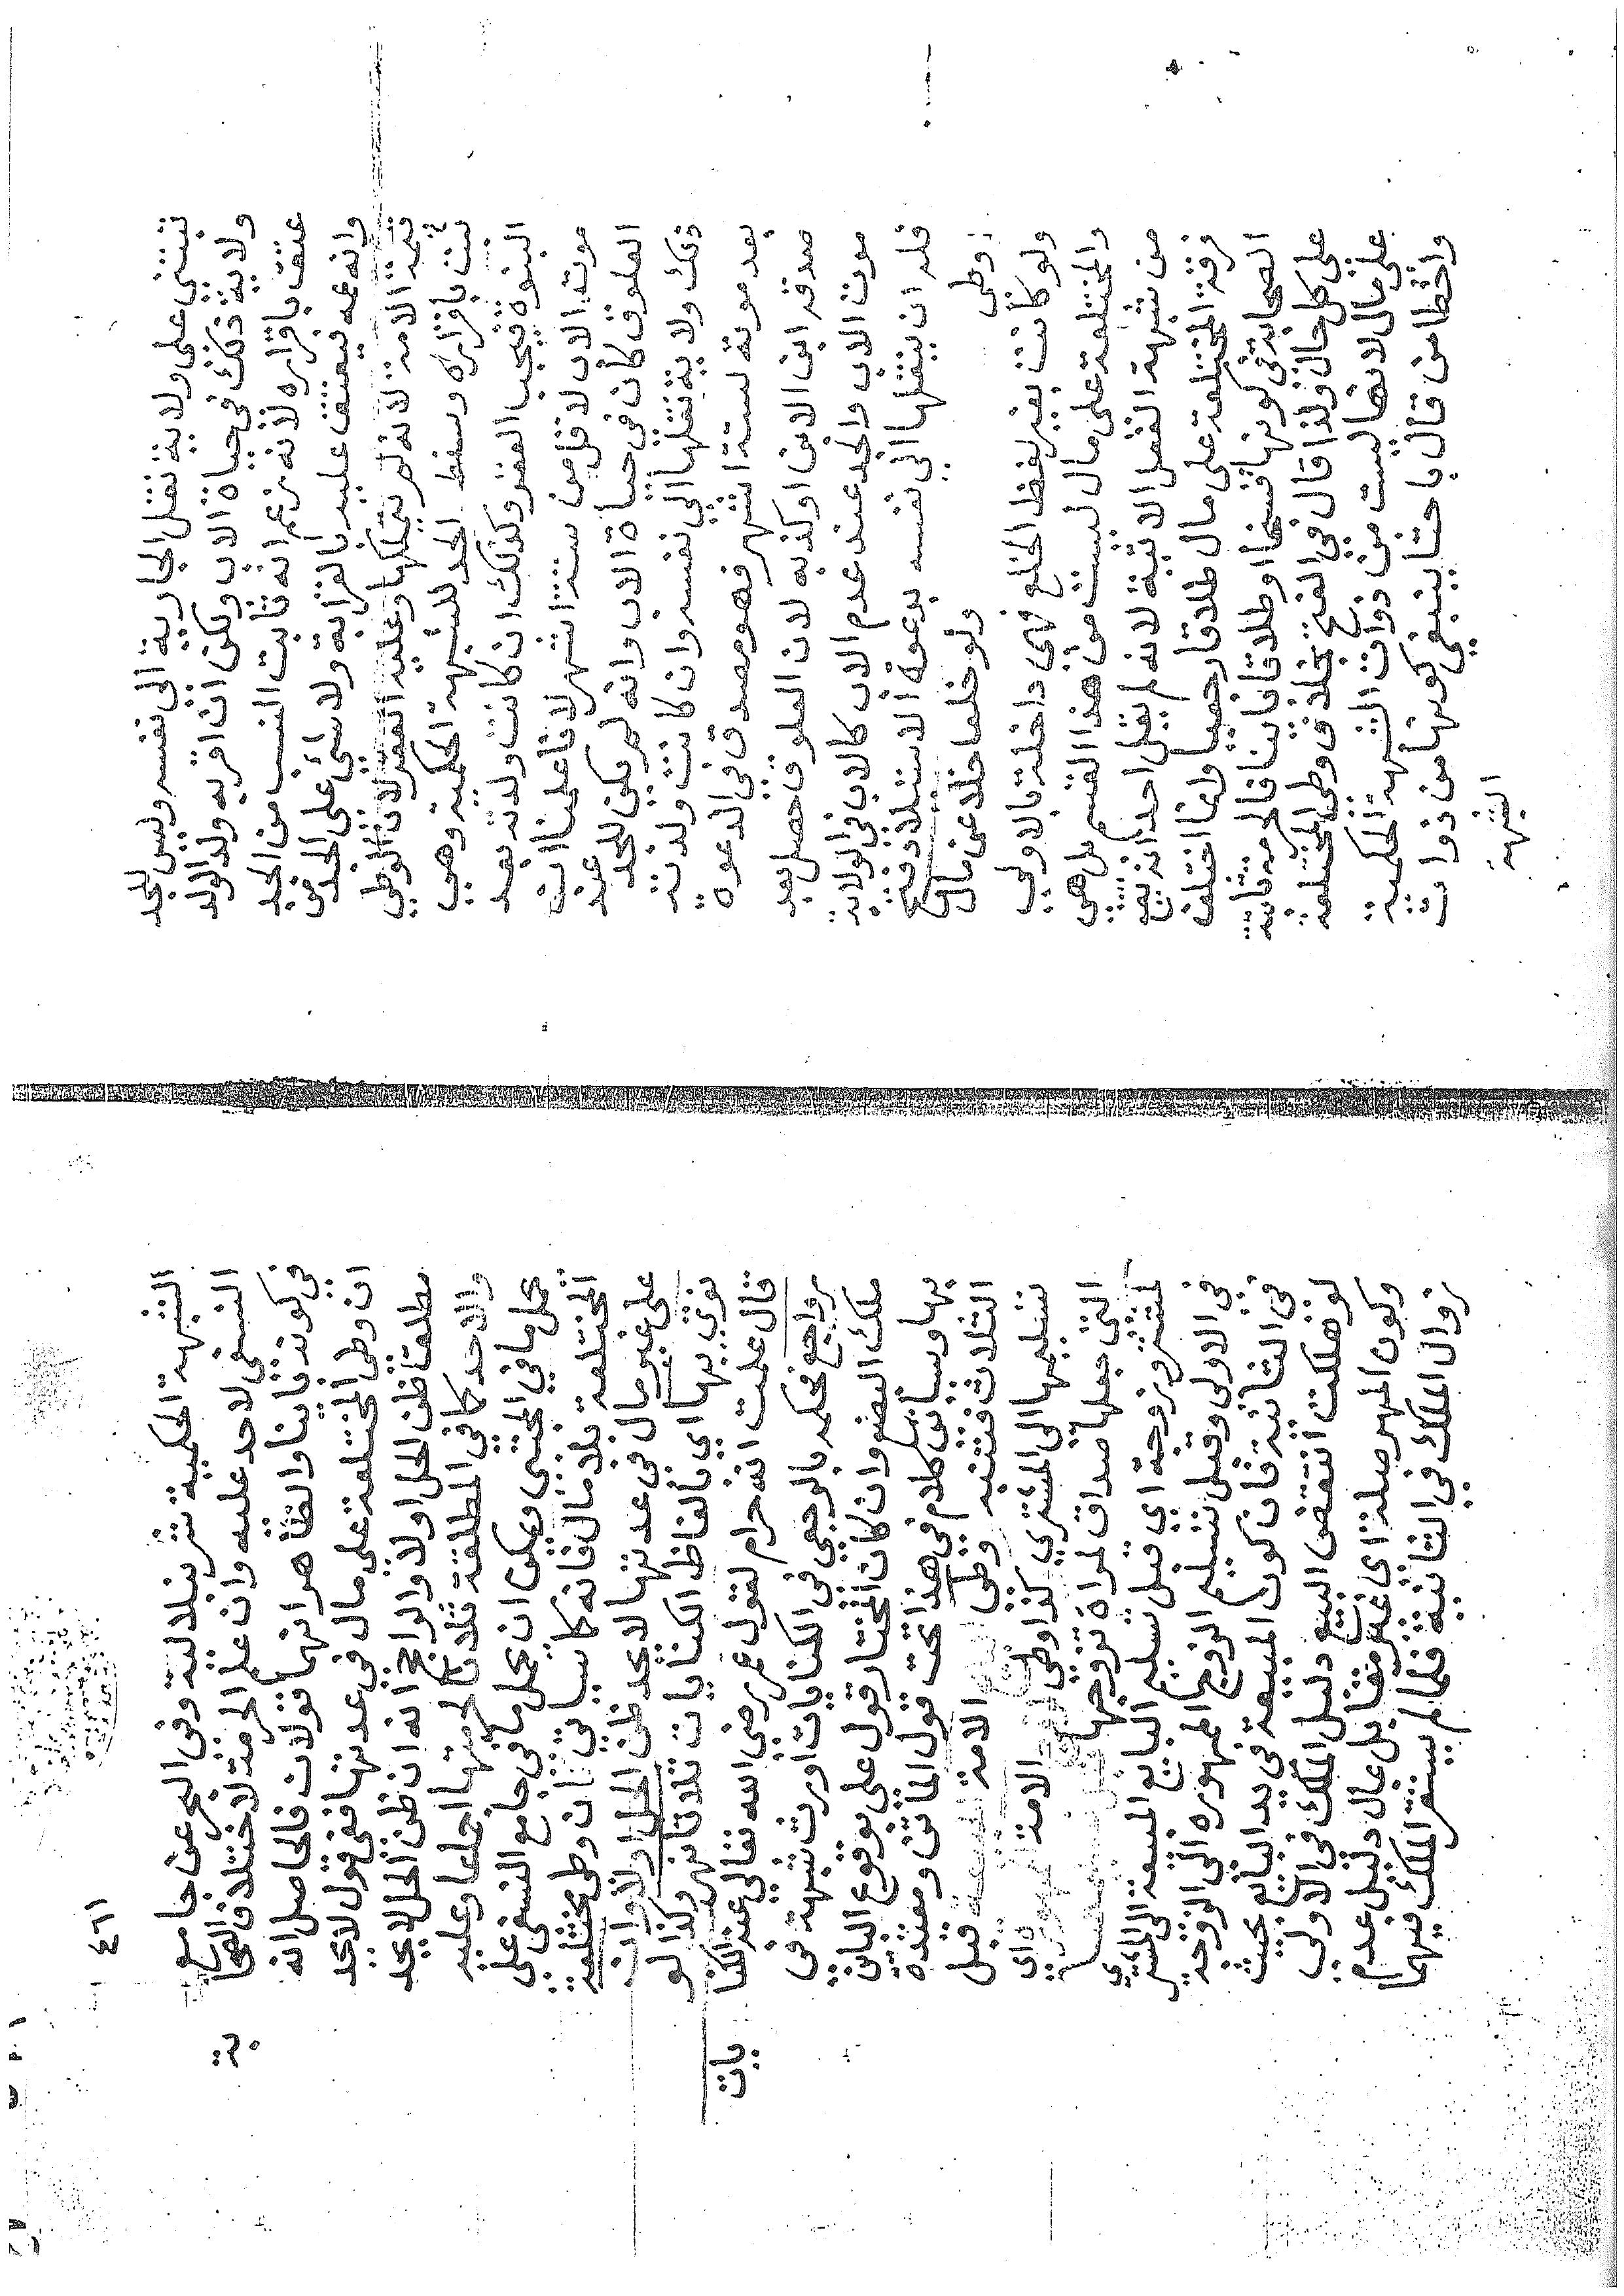 تبتنى على ولاية نقل الجارية الى نفسه وليس للجد
ولاية ذلك في حياة الاب ولكن ان اقر به ولد الولد
عتق باقراره لانه زعم انه ثابت النسب من الجد
وانه عمه فيعتق عليه بالقرابة ولا شئ على الجد من
قيمة الامة لانه لم يتملكها وعليه العقر لان الوطى
ثبت باقراره وسقط الحد للشبهة الحكمية وهى
البنوة فيجب العقر وكذلك ان كانت ولدته بعد
موت الاب لاقل من ستة اشهر لانا علمنا ان
العلوق كان في حياة الاب وانه لم يكن للجد عند
ذلك ولاية نقلها الى نفسه وان كانت ولدته
بعد موته لستة اشهر فهو مصدق في الدعوة
صدقه ابن الابن او كذبه لان العلوق حصل بعد
موت الاب والجد عند عدم الاب كالاب في الولاية
فله ان ينقلها الى نفسه بدعوة الاستيلاد
وطى ولو خلعا خلا عن مال
ولو كانت بغير لفظ الخلع فهى داخلة بالاولى
والمختلعة على مال ليست من هذا القسم بل هى
من شبهة الفعل الاتية لانه لم يقل احد انه تقع
فرقة المختلعة على مال طلاقا رجعيا وانما اختلف
الصحابة في كونها فسخا او طلاقا بائنا فالحرمة ثابتة
على كل حال ولذا قال في الفتح بخلاف وطى المختلعة
على مال لانها ليست من ذوات الشبهة الحكمية
واخطا من قال باحثا ينبغى كونها من ذوات
الشبهة
٤٦١
الشبهة الحكمية وفي البحر عن جامع
النسفى لاحد عليه وان علم الحرمة لاختلاف الصحابة
في كونه بائنا والظاهر انهما قولان فالحاصل انه
ان وطى المختلعة على مال في عدتها ففى قول لايحد
مطلقا ظن الحل اولا والراجح انه ان ظن الحل لايحد
والاحد كما في المطلقة ثلاثا لحرمتها اجماعا وعليه
يحمل ما في المجتبى ويمكن ان يحمل ما في جامع النسفى على
المختلعة بلا مال فانه كما سيأتى ان وطى مختلعة
على غير مال في عدتها لايحد ظن الحل اولا وان
نوى بها اي بالفاظ الكنايات ثلاثا وكذا لو
قال علمت انه حرام لقول عمر رضى الله تعالى عنه الكنايات
رواجع فحكمه بالرجعى في الكنايات اورث شبهة في
ملك البضع وان كان المختار قول على بوقوع البائن
بها وسيأتى كلام في هذا تحت قول الماتن ومعتدة
الثلاث فتنبه وطى الامة المبيعة قبل
تسليمها الى المشترى كذا وطى الامة الممهورة اي
التى جعلها صداق لمراة تزوجها قبل تسليمها
لمشتر وزوجة اي قبل تسليم البايع المبيعة الى المشترى
في الاولى وقبل تسليم الزوج الممهورة الى الزوجة
في الثانية فان كون المبيعة في يد البائع بحيث
لو هلكت انتقض البيع دليل الملك في الاولى
وكون المهر صلة اى غير مقابل بمال دليل عدم
زوال الملك في الثانية فلما لم يستقر الملك فيهما